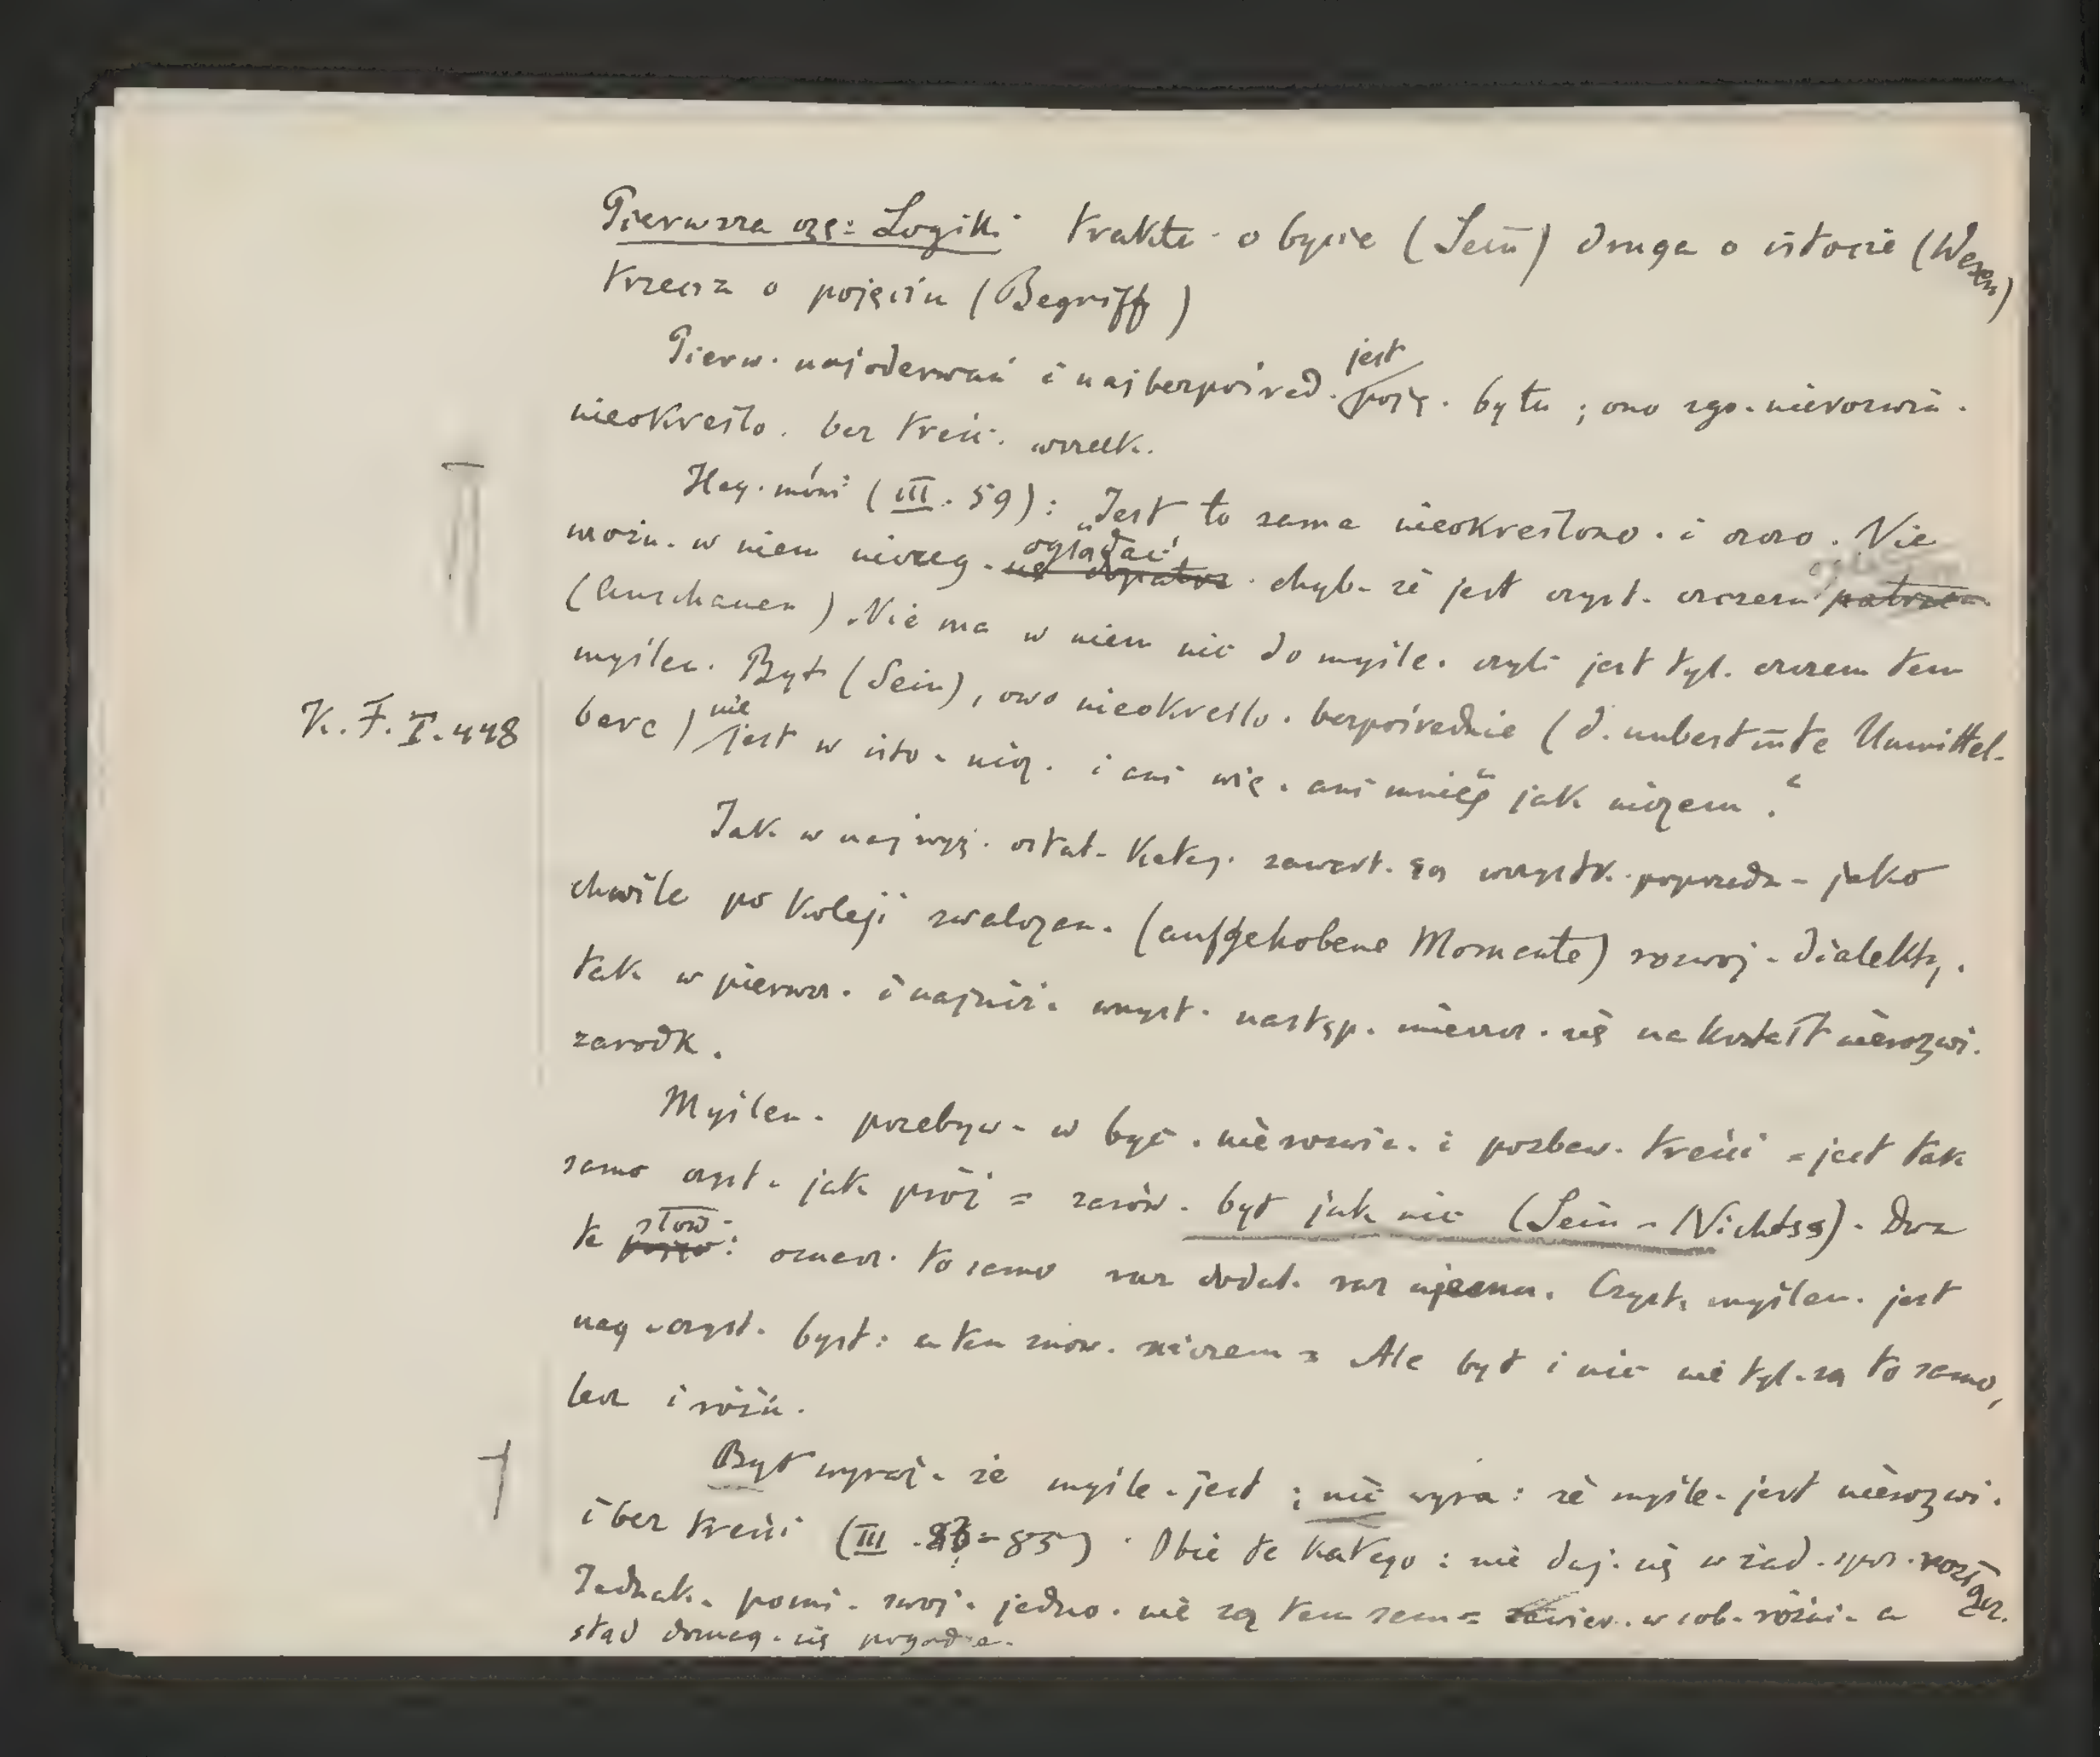 Pierwsza czę: Logiki trakte. o bycie (Sein) druga o istocie (Wesen)
trzecia o pojęciu (Begriff)
Pierw. najoderwań i najbezpośred. jest poję. bytu ; ono zgo. nierozwin.
nieokreślo. bez treśc. wszelk.
Heg. mówi: (III. 59): „Jest to sama nieokreślono. i czczo. Nie
możn. w niem niczeg. oglądać, chyb. że jest czyst. czczem
(Anschauen). Nie ma w niem nic do myśle. czyli jest tyl. czczem tem
myślen. Byt (Sein), owo nieokreślo. bezpośrednie (d. unbestimte Unmittel-
K. F. I. 448
bare) nie jest w isto. nicz. i ani wię. ani mniej jak niczem."
Jak w najwyż. ostat. kateg. zawart. są wszystk. poprzedn. jako
chwile po kolei zwalczan. (aufgehobene Momente) rozwoj. dialekty.
tak w pierwsz. i najniż. wszyst. następ. mieszcz. się na kształt nierozwi.
zarodk.
Myślen. przebyw. w być. nierozwin. i pozbaw. treści = jest tak
samo czyst. jak próż = zarów. byt jak nic (Sein - Nichtss). Dwa
te słow: oznacz. to samo raz dodat. raz ujemn. Czyst. myślen. jest
nag. czyst. byt: a ten znow. niczem = Ale byt i nic nie tyl. są to samo,
lecz i różn.
Byt wyraż. że myśle. jest ; nic wyra: że myśle. jest nierozwi.
i bez treści (III. -85). Obie te katego: nie daj. się w żad. spos.
Jednak. pomi. swoj. jedno. nie są tem sam = zawier. w sob. różni. a
stąd domag. się